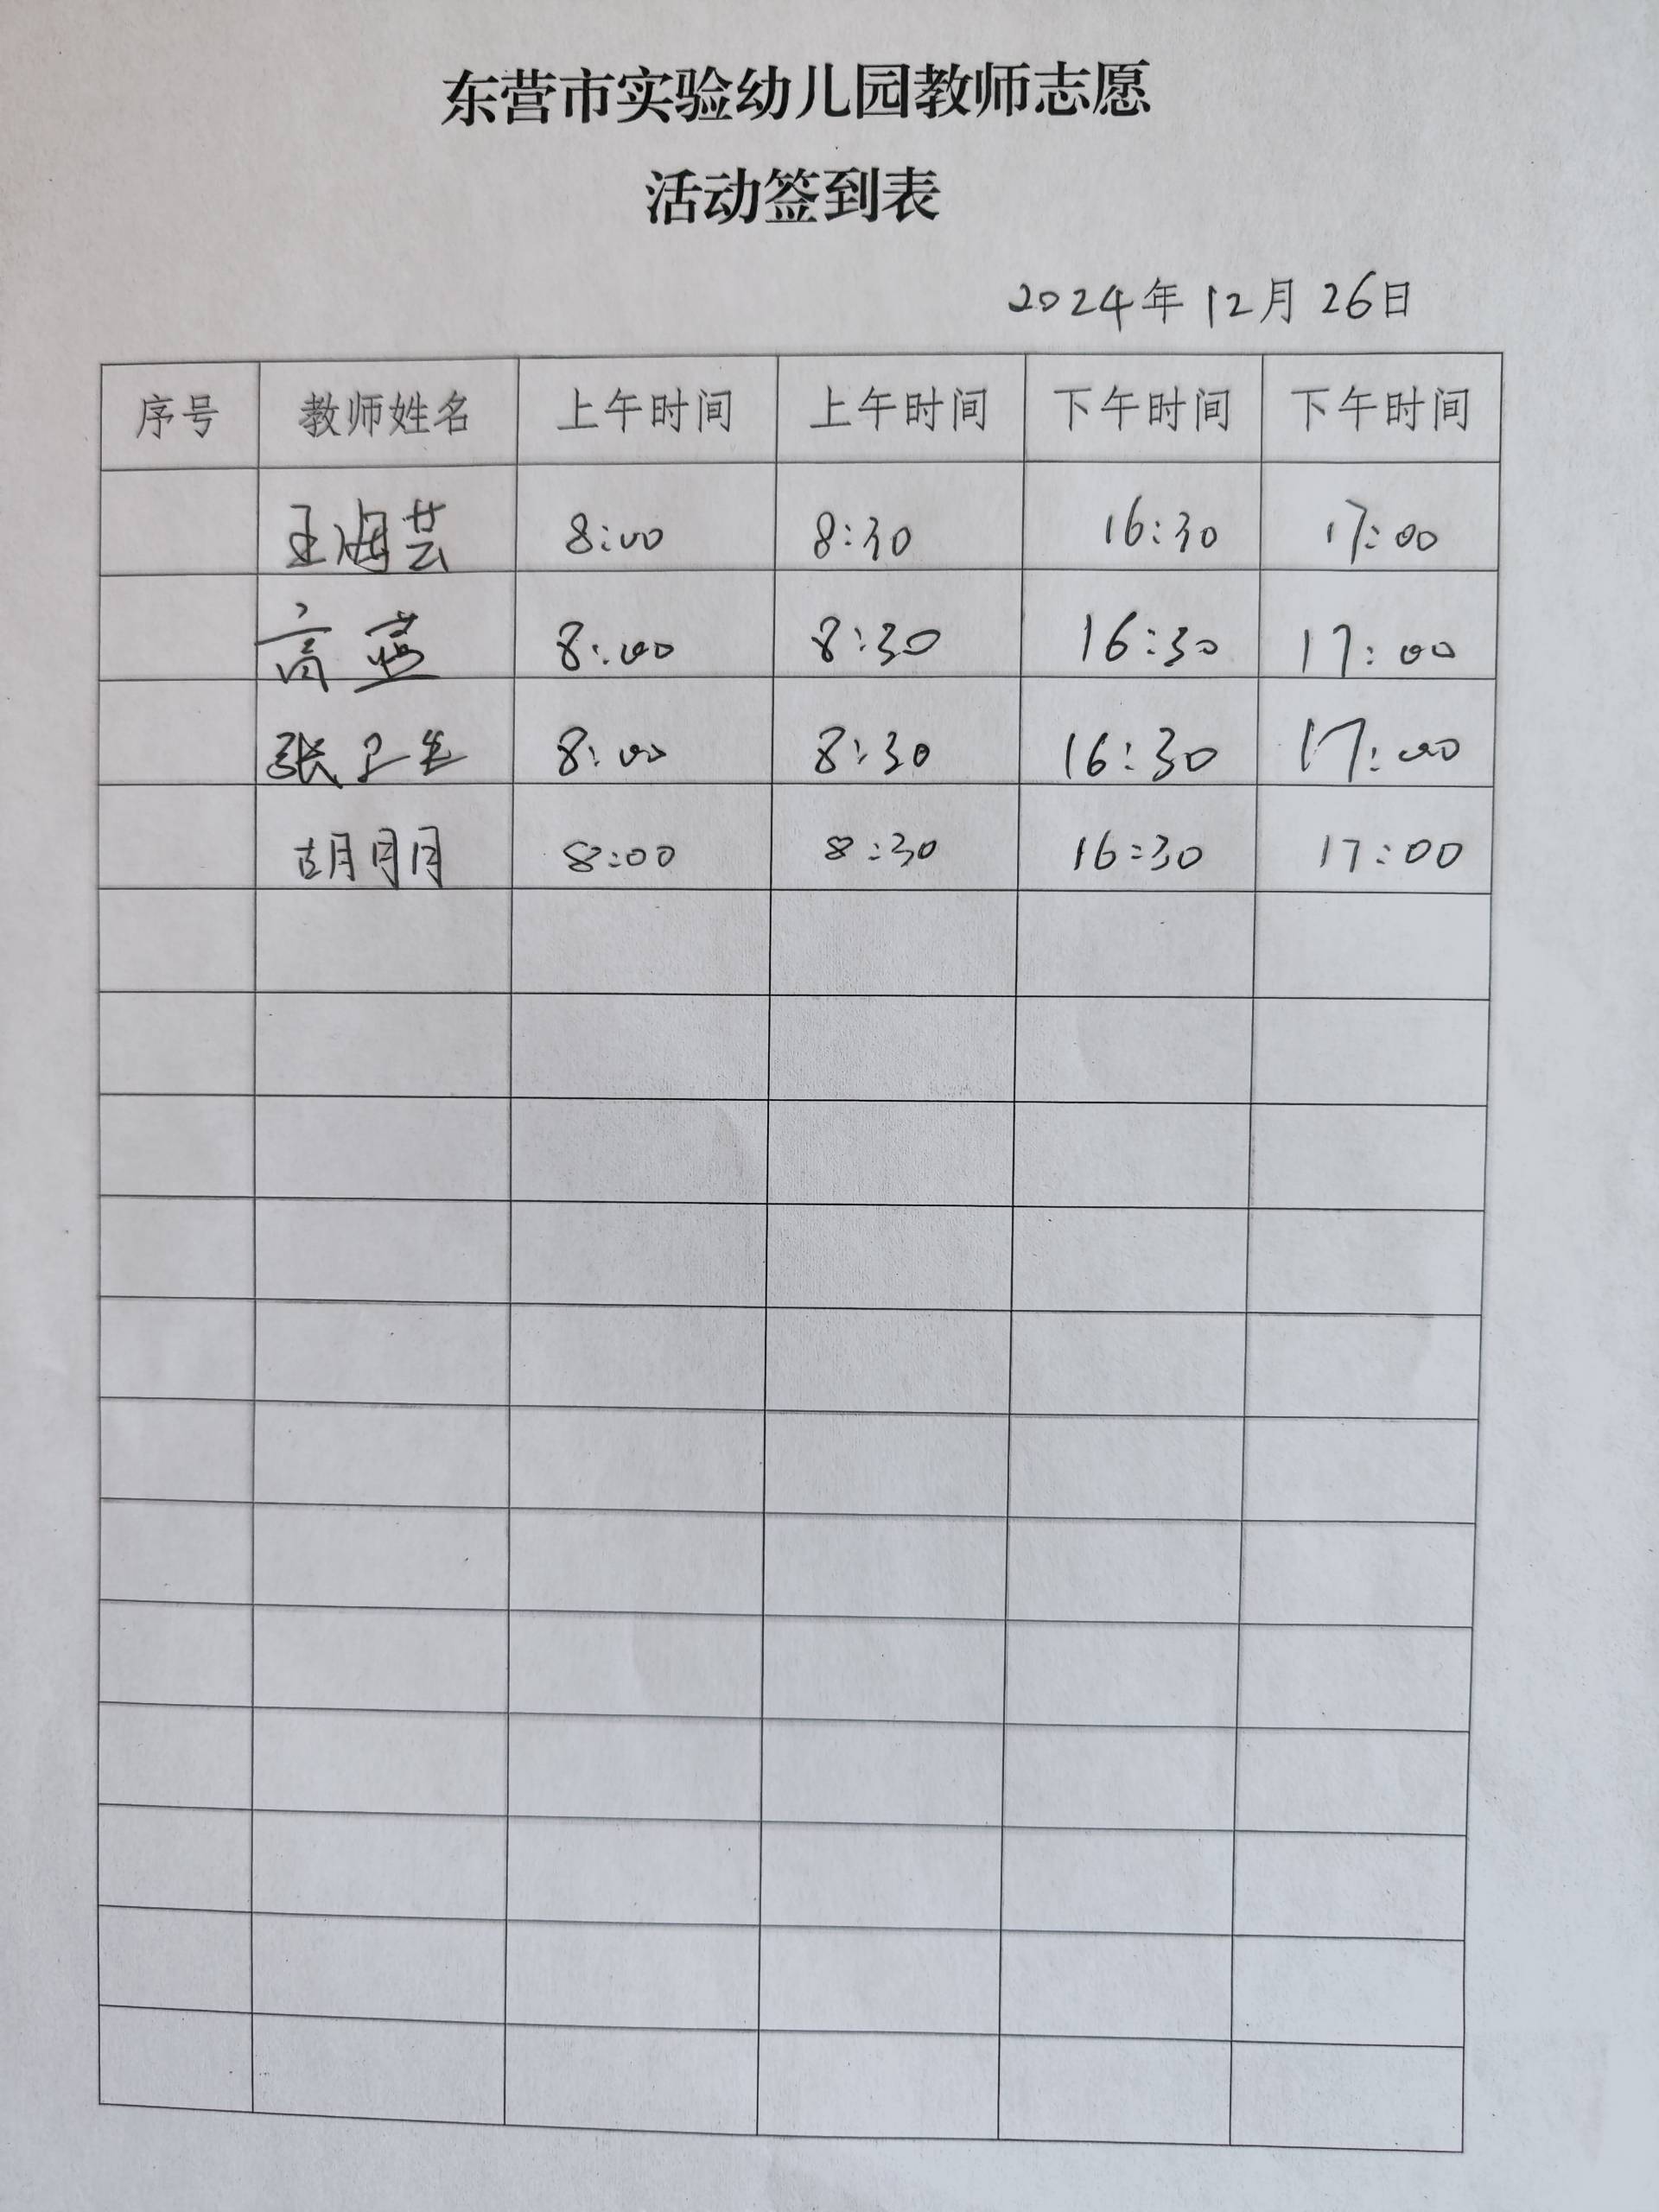 东营市实验幼儿园教师志愿
活动签到表
2024年12月26日
序号 教师姓名 上午时间 上午时间 下午时间 下午时间
王海芸 8:00 8:30 16:30 17:00
高燕 8:00 8:30 16:30 17:00
张卫生 8:00 8:30 16:30 17:00
胡月月 8:00 8:30 16:30 17:00